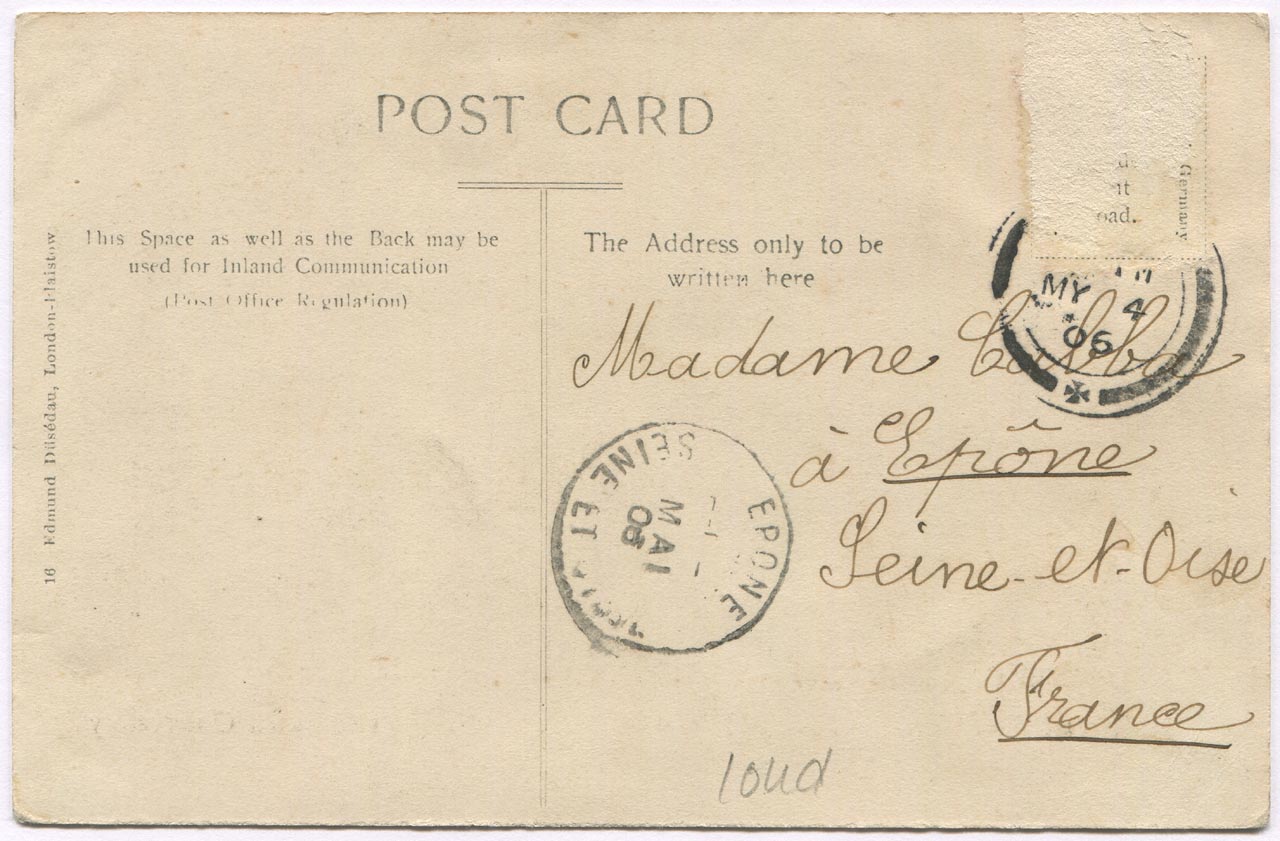 POST CARD
This Space as well as the Back may be
used for Inland Communication
(Post Office Regulation)
The Address only to be
written here
16 Edmund Düsédau, London-Plaistow
Germany
oad.
MY 4
06
Madame
à Epône
Seine-et-Oise
France
EPONE
SEINE ET
MAI
06